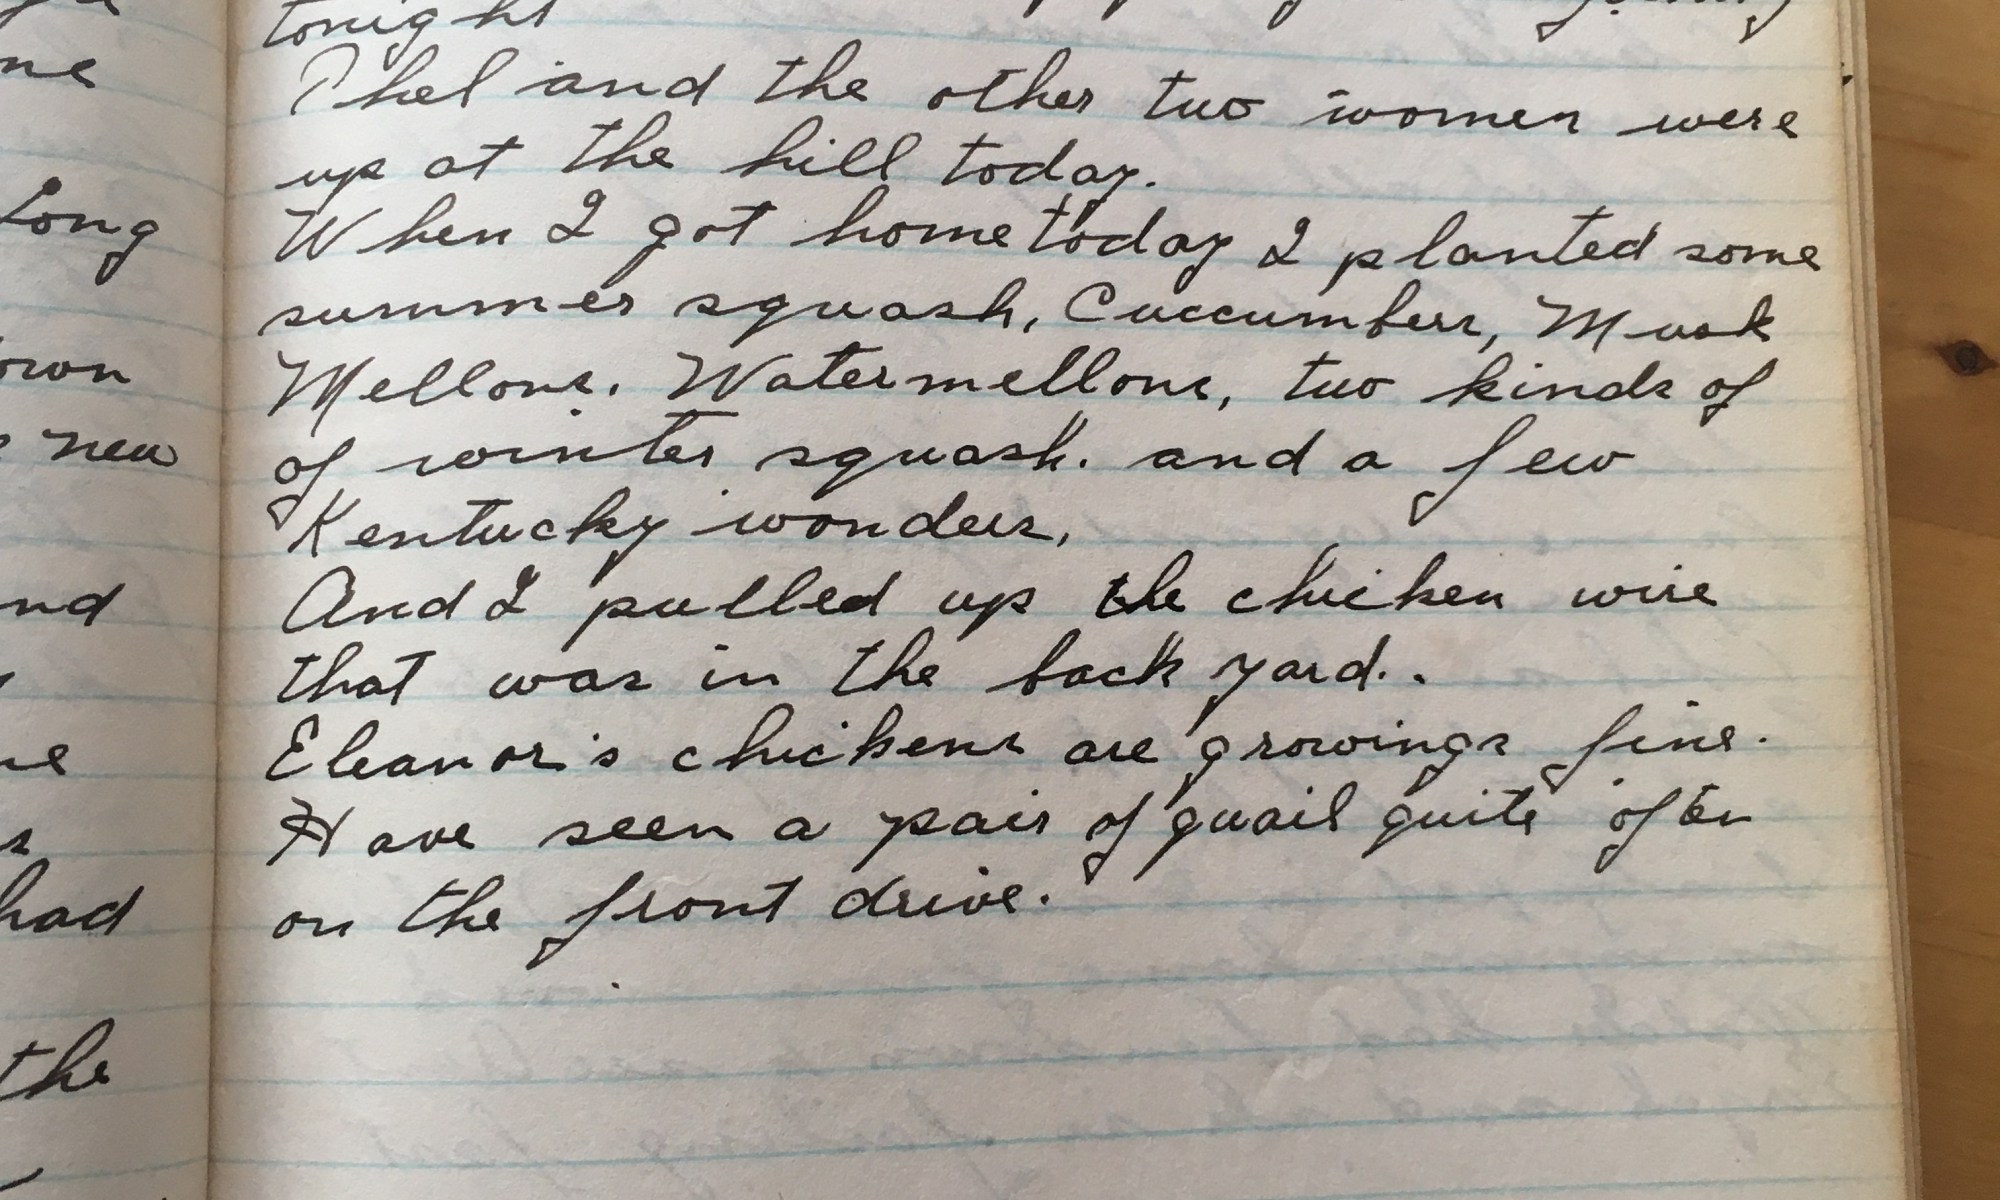 me
Long
own
new
nd
had
the
tonight
Phel and the other two women were
up at the hill today.
When I got home today I planted some
summer squash, Cuccumbers, Musk
Mellons. Watermellons, two kinds of
of winter squash. and a few
Kentucky wonders,
And I pulled up the chicken wire
that was in the back yard..
Eleanor's chickens are growings fine.
Have seen a pair of quail quite often
on the front drive.